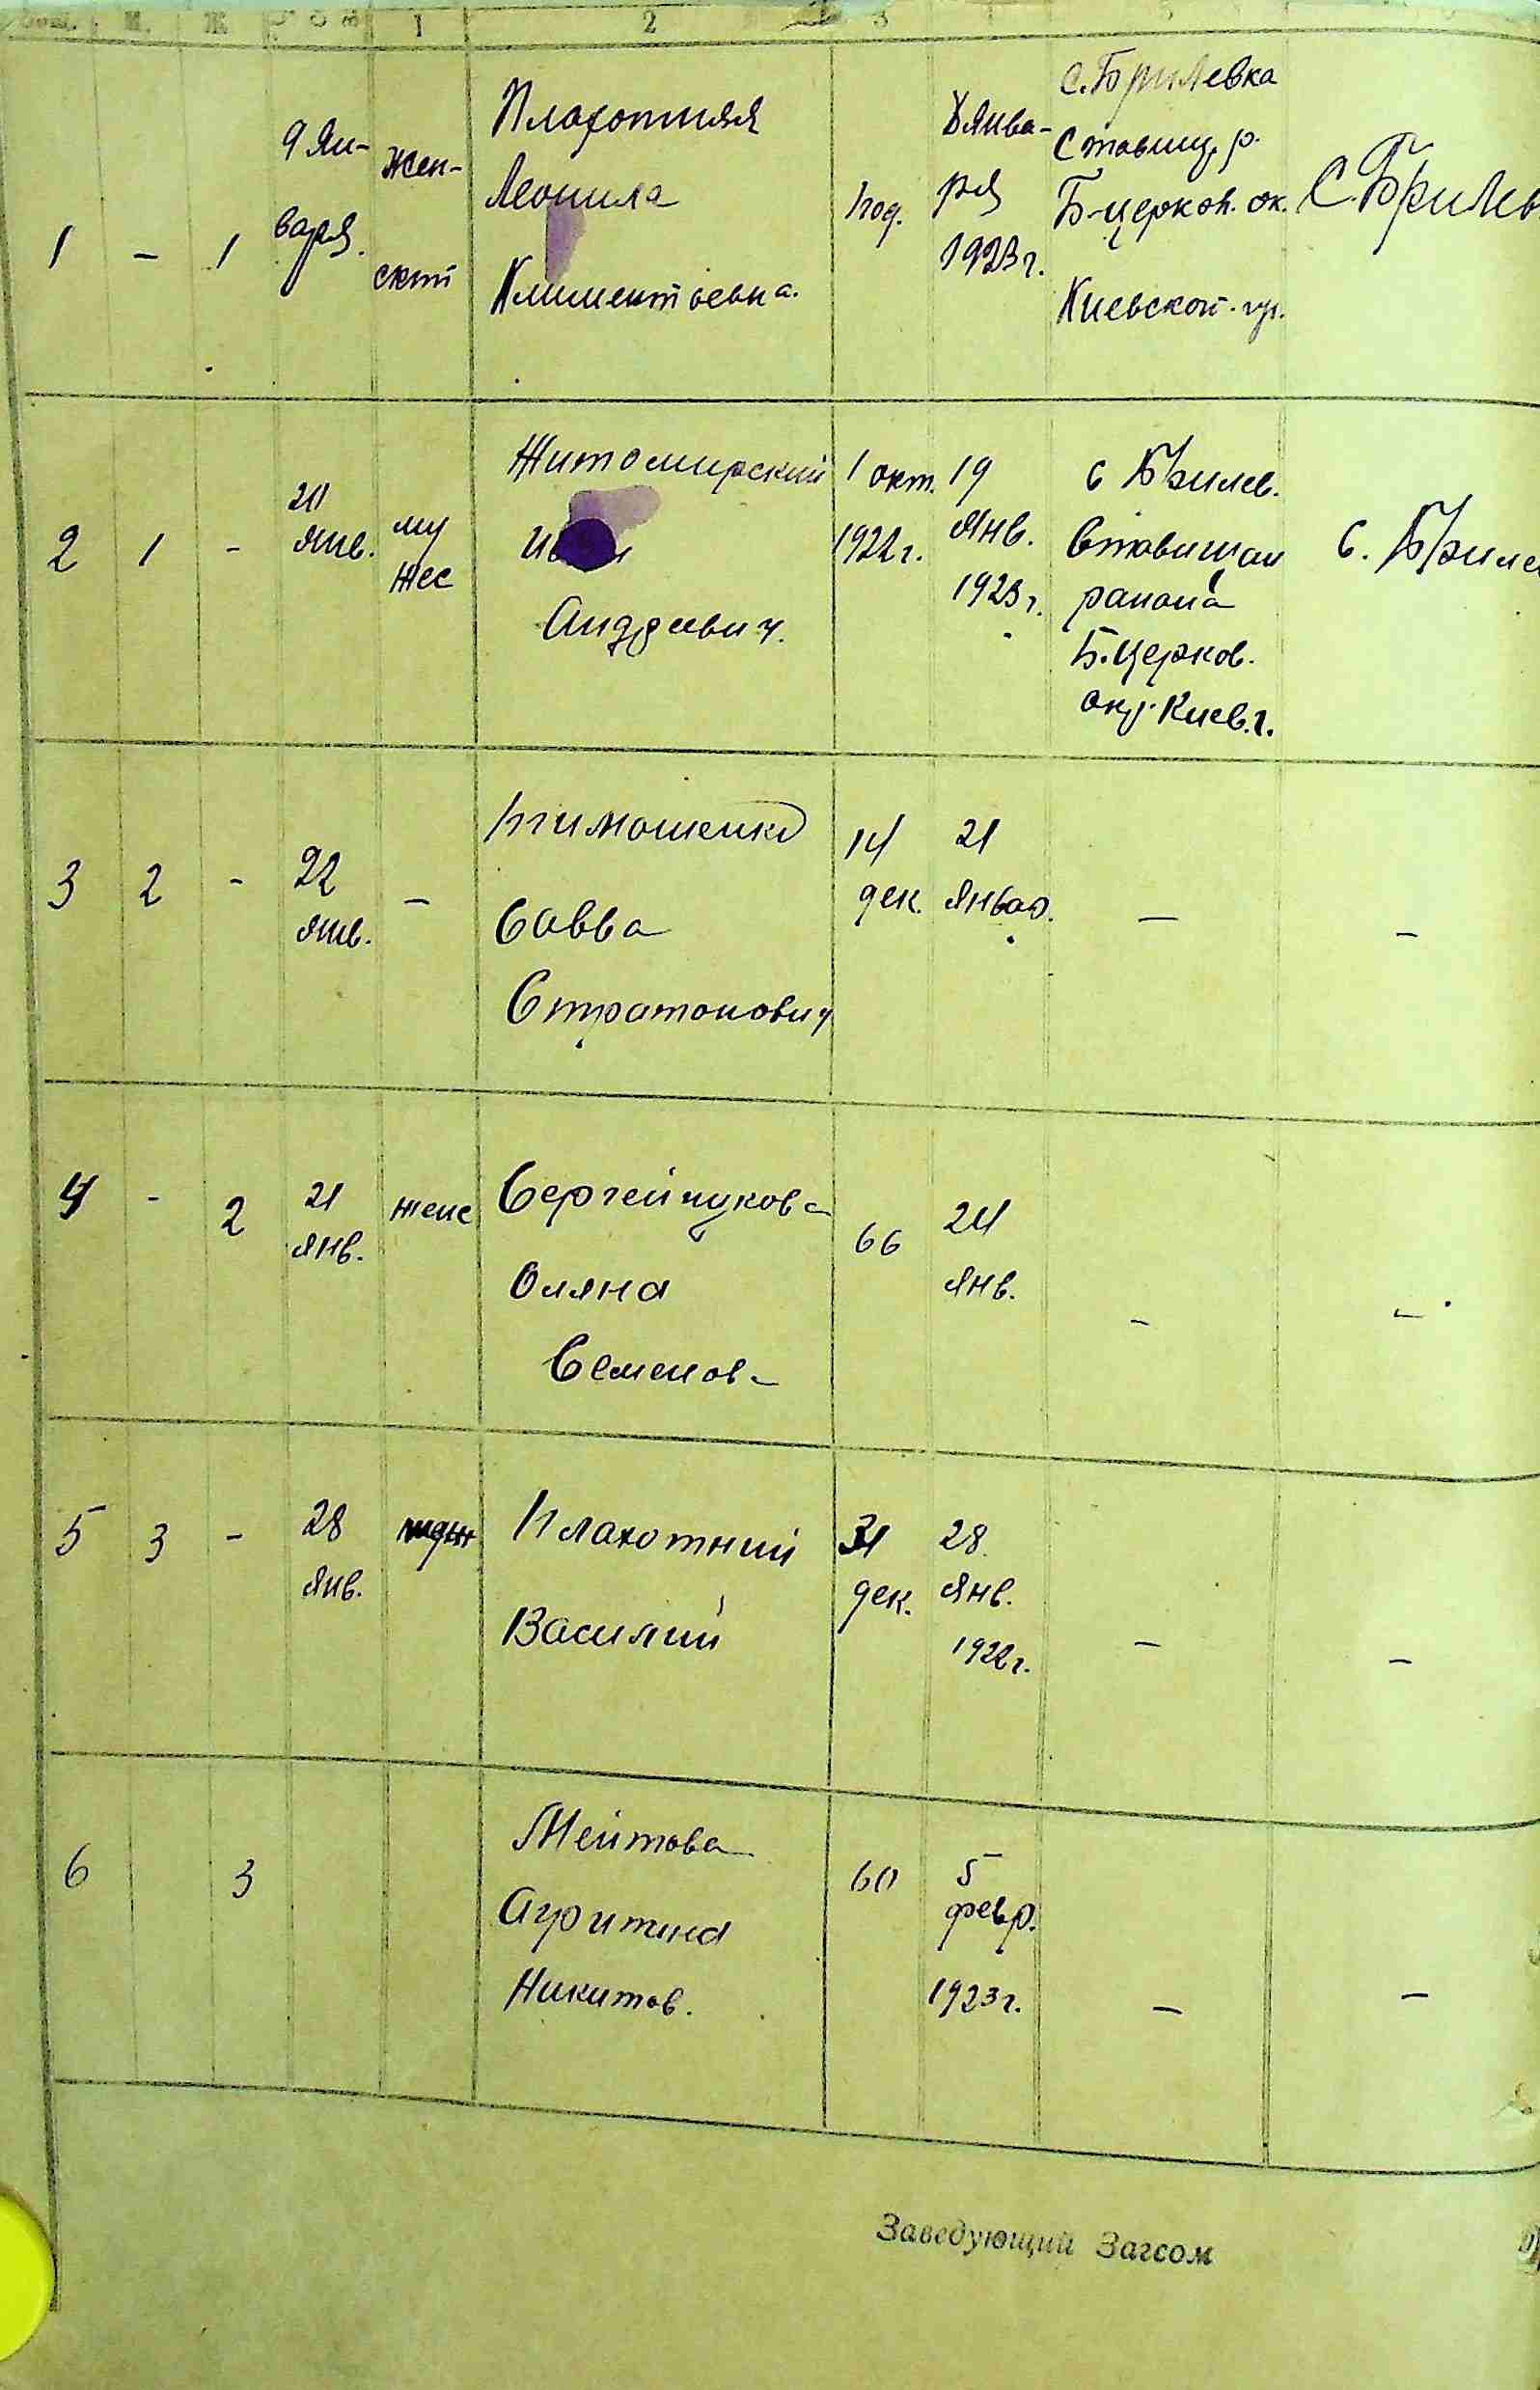 общ. М. Ж 1 2 3 5
1 - 1
9 Ян-
варя.
Жен-
ский
Плахотняя
Леонила
Климентьевна.
1 год.
8 Янва-
ря
1923 г.
с. Брилевка
Ставищ. р.
Б-церков. ок.
Киевской. гу.
С. Брилев
2 1 -
20
янв.
му
жес
Житомирский
Андреевич.
1 окт.
1922 г.
19
Янв.
1923 г.
с Брилев.
Ставищан
района
Б. Церков.
окр. Киев. г.
С. Бриле
3 2 -
22
янв.
-
Тимошенко
Савва
Стратонович
14
дек.
21
Январ.
-
-
4 - 2
21
янв.
женс
Сергейчукова
Оляна
Семенов-
66
24
янв.
-
-
5 3 -
28
Янв.
Плахотний
Василий
31
дек.
28
Янв.
1922 г.
-
-
6 3
Мейтова
Никитов.
60
5
февр.
1923 г.
-
-
Заведующий Загсом